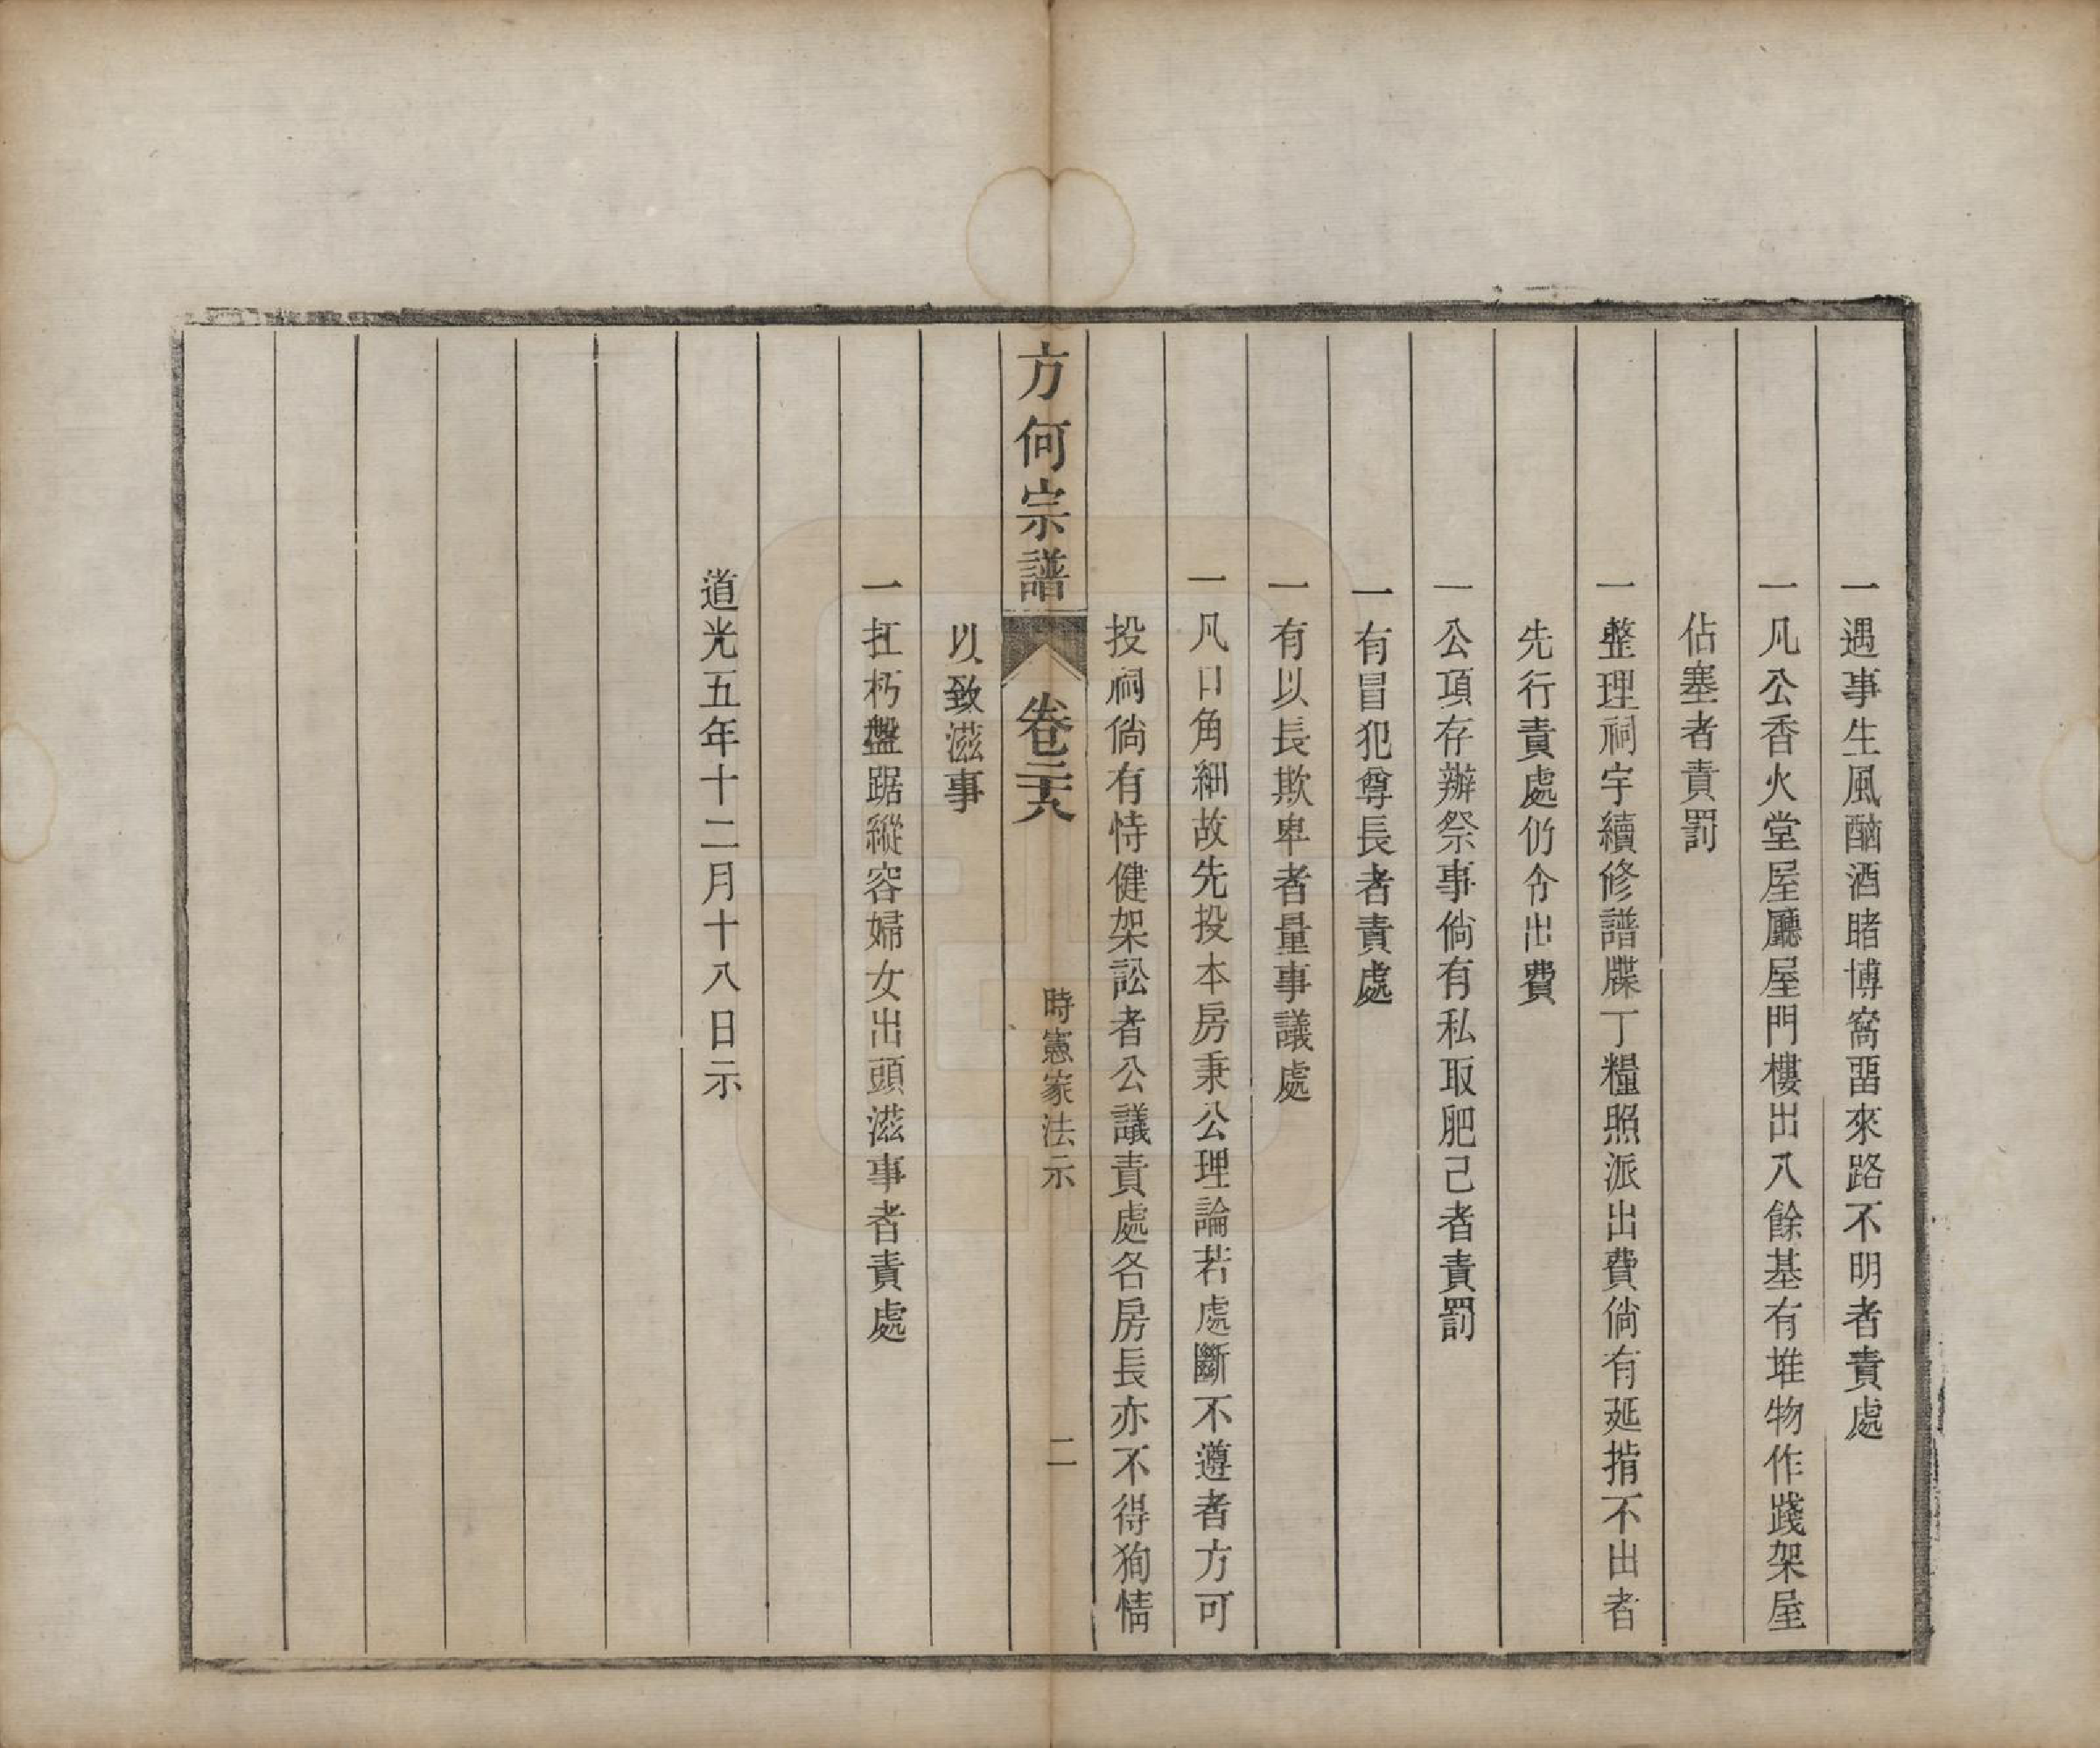 一遇事生風酗酒賭博窩畱來路不明者責處
一凡公香火堂屋廳屋門樓出入餘基有堆物作踐架屋
佔塞者責罰
一整理祠宇續修譜牒丁糧照派出費倘有延揹不出者
先行責處仍令出費
一公項存辦祭事倘有私取肥己者責罰
一有冒犯尊長者責處
一有以長欺卑者量事議處
一凡口角細故先投本房秉公理論若處斷不遵者方可
投祠倘有恃健架訟者公議責處各房長亦不得狥情
方何宗譜 卷三十六 時憲家法示 二
以致滋事
一扛朽盤踞縱容婦女出頭滋事者責處
道光五年十二月十八日示